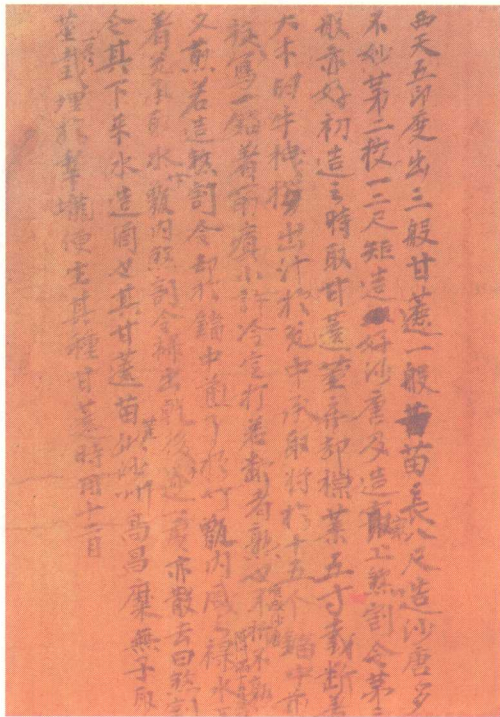 西天五印度出三般甘蔗一般苗長八尺造沙唐多
不妙第二校一二尺矩造好沙唐及造最上煞割令第三
般亦好初造之時取甘蔗莖弃却梢葉五寸截断着
大木臼牛拽拶出汁於瓮中承取將於十五个鐺中煎
旋寫一鐺着筯小許冷定打若断者熟也便成沙唐不折不熟
又煎若造煞割令却於鐺中煎了於竹甑内盛之禄水下
着瓮承取水竹甑内煞割令禄出乾後遂一處亦散去曰煞割
令其下來水造酒也其甘蔗苗莖似沙州高昌糜無子取
莖一尺截埋於犁壠便生其種甘蔗時用十二月